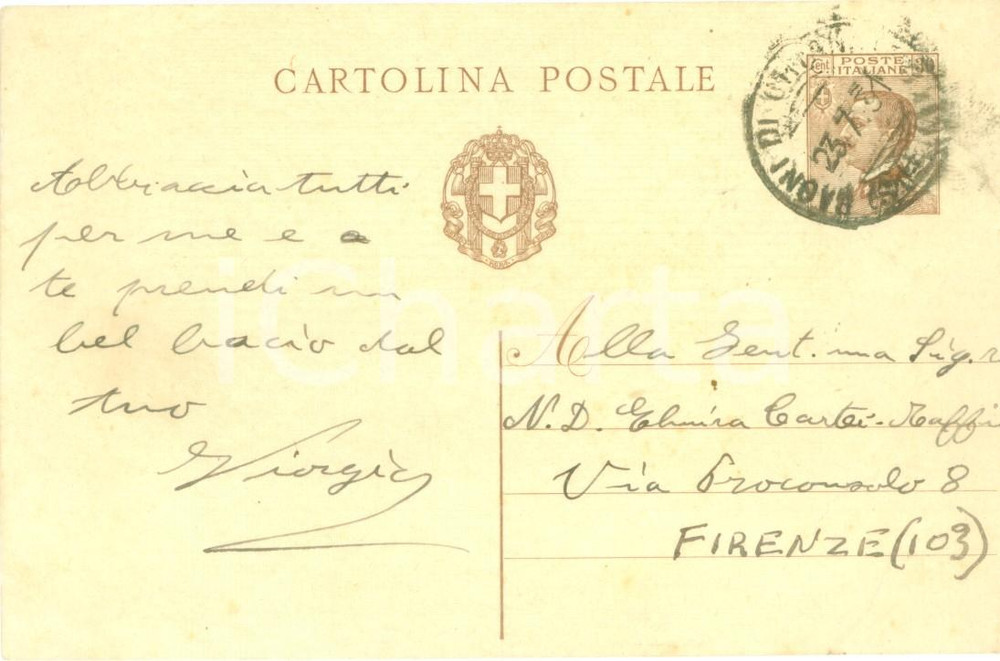 CARTOLINA POSTALE
Cent. 30
POSTE
ITALIANE
BAGNI DI
23.7.31
Abbraccia tutti
per me e a
te prendi un
bel bacio dal
tuo
Giorgio
iCharta
Alla Gent.ma Sig.r
N. D. Elmira Cartei-Raffi
Via Proconsolo 8
FIRENZE (109)